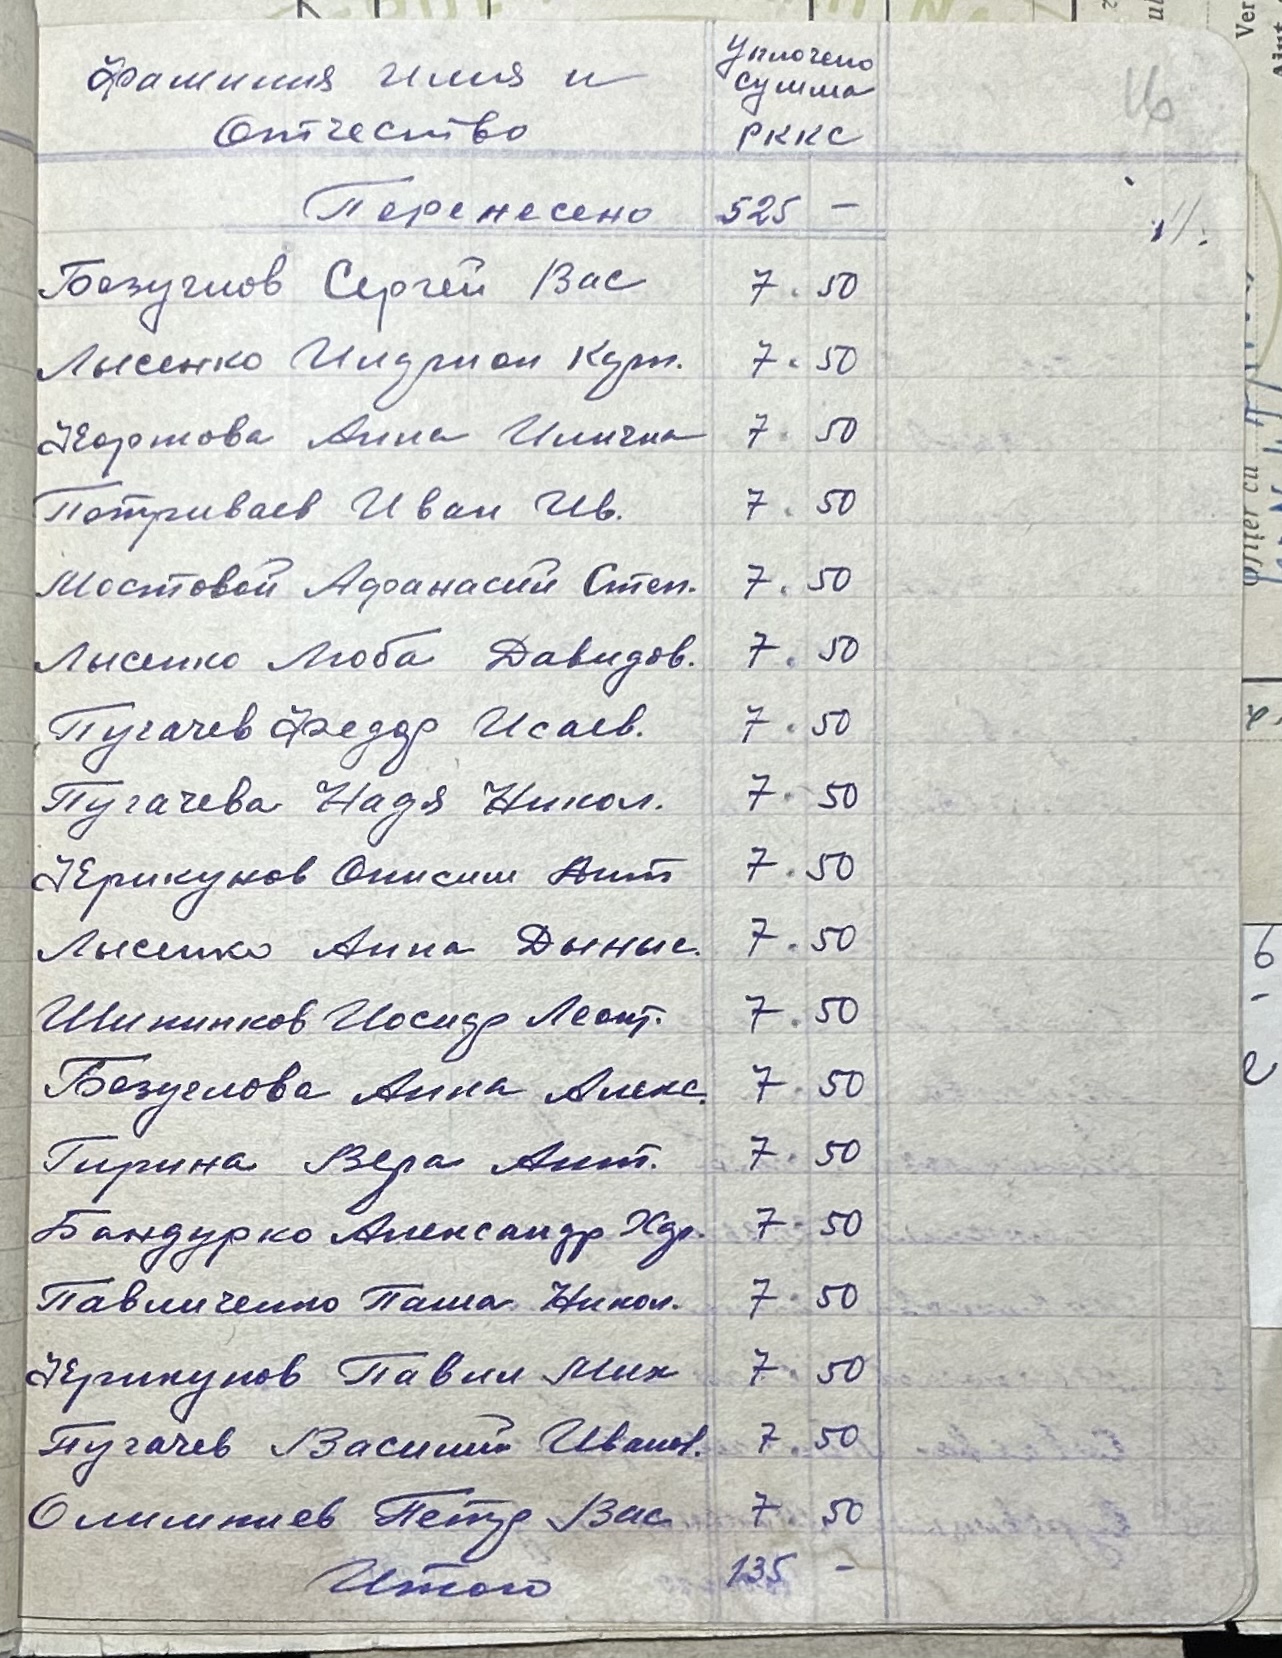 Фамилия Имя и
Отчество
Уплочено
сумма
РККС
16
Перенесено 525 –
Безуглов Сергей Вас 7.50
Лысенко Илдрион Кдр. 7.50
Жортова Анна Илична 7.50
Потриваев Иван Ив. 7.50
Мостовой Афанасий Степ. 7.50
Лысенко Люба Давидов. 7.50
Пугачев Федор Исаев. 7.50
Пугачева Надя Никол. 7.50
Черикунов Онисим Ант 7.50
Лысенко Анна Дыныс. 7.50
Шининков Иосидр Леонт. 7.50
Безуглова Анна Алекс. 7.50
Гирина Вера Ант. 7.50
Бандурко Александр Хар. 7.50
Павличенко Паша Никол. 7.50
Черикунов Павел Мих 7.50
Пугачев Василий Иванов. 7.50
Олимпиев Петр Вас 7 50
Итого 135 –